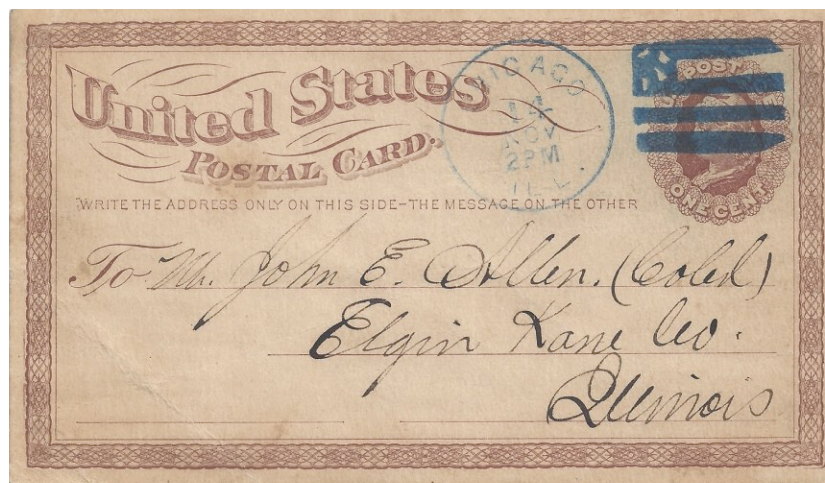 United States
POSTAL CARD.
CHICAGO
14
NOV
2PM
ILL.
U.S. POSTAGE
ONE CENT
WRITE THE ADDRESS ONLY ON THIS SIDE–THE MESSAGE ON THE OTHER
To Mr. John E. Allen. (Coled)
Elgin Kane Co.
Illinois